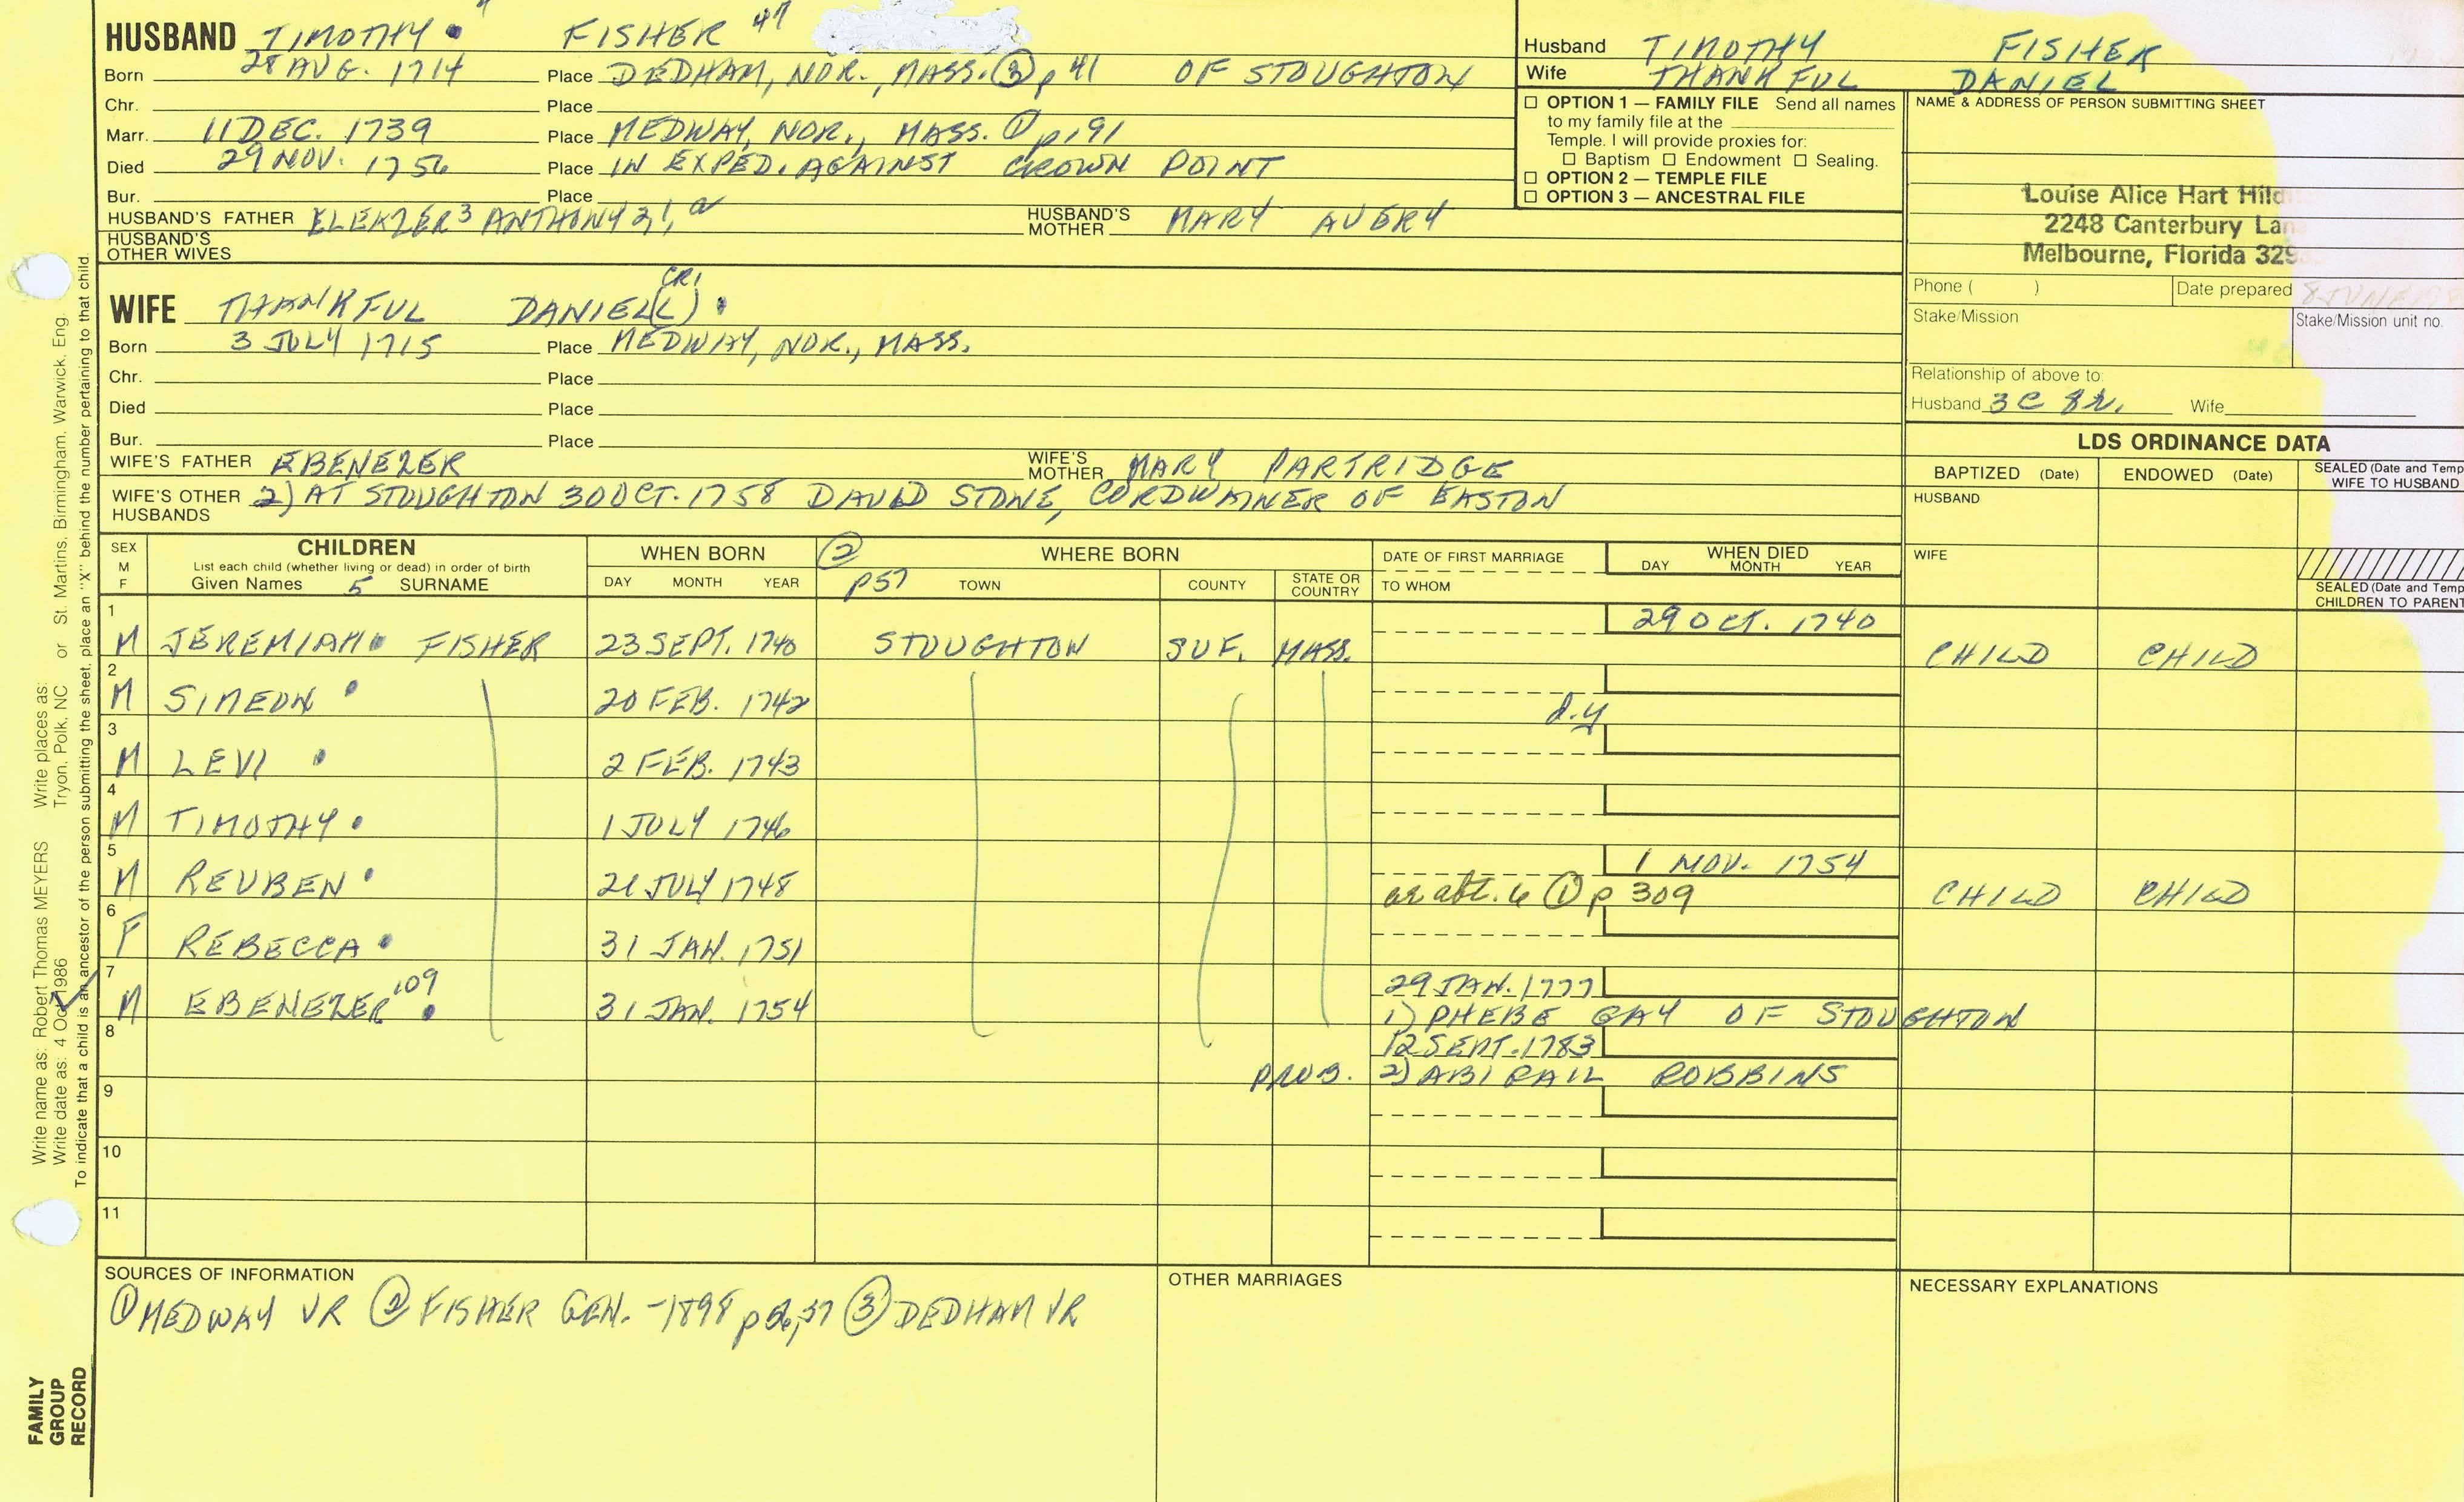 HUSBAND TIMOTHY 4 FISHER 47
Born 28 AUG. 1714 Place DEDHAM, NOR., MASS. ③ p 41 OF STOUGHTON
Chr. Place
Marr. 11 DEC. 1739 Place MEDWAY, NOR., MASS. ① p 191
Died 29 NOV. 1756 Place IN EXPED. AGAINST CROWN POINT
Bur. Place
HUSBAND'S FATHER ELEAZER 3 ANTHONY 2, 1, a HUSBAND'S MOTHER MARY AVERY
HUSBAND'S OTHER WIVES
Husband TIMOTHY FISHER
Wife THANKFUL DANIEL
☐ OPTION 1 — FAMILY FILE Send all names
to my family file at the
Temple. I will provide proxies for:
☐ Baptism ☐ Endowment ☐ Sealing.
☐ OPTION 2 — TEMPLE FILE
☐ OPTION 3 — ANCESTRAL FILE
NAME & ADDRESS OF PERSON SUBMITTING SHEET
Louise Alice Hart Hild
2248 Canterbury Lan
Melbourne, Florida 329
Phone ( ) Date prepared 8 JUNE
Stake/Mission Stake/Mission unit no.
Relationship of above to:
Husband 3C 8R. Wife
WIFE THANKFUL DANIEL(L) CR1
Born 3 JULY 1715 Place MEDWAY, NOR., MASS.
Chr. Place
Died Place
Bur. Place
WIFE'S FATHER EBENEZER WIFE'S MOTHER MARY PARTRIDGE
WIFE'S OTHER HUSBANDS 2) AT STOUGHTON 30 OCT. 1758 DAVID STONE, CORDWAINER OF EASTON
LDS ORDINANCE DATA
BAPTIZED (Date) ENDOWED (Date) SEALED (Date and Temp
WIFE TO HUSBAND
HUSBAND
WIFE
SEALED (Date and Temp
CHILDREN TO PARENT
SEX M F CHILDREN
List each child (whether living or dead) in order of birth
Given Names 5 SURNAME
WHEN BORN DAY MONTH YEAR
② p57 WHERE BORN TOWN COUNTY STATE OR COUNTRY
DATE OF FIRST MARRIAGE TO WHOM
WHEN DIED DAY MONTH YEAR
1 M JEREMIAH FISHER 23 SEPT. 1740 STOUGHTON SUF. MASS. 29 OCT. 1740 CHILD CHILD
2 M SIMEON 20 FEB. 1742 d.y
3 M LEVI 2 FEB. 1743
4 M TIMOTHY 1 JULY 1746
5 M REUBEN 21 JULY 1748 1 NOV. 1754 ae abt. 6 ① p 309 CHILD CHILD
6 F REBECCA 31 JAN. 1751
7 M EBENEZER 109 31 JAN. 1754 29 JAN. 1777
1) PHEBE GAY OF STOUGHTON
8 12 SEPT. 1783
PROB. 2) ABIGAIL ROBBINS
9
10
11
SOURCES OF INFORMATION
① MEDWAY VR ② FISHER GEN. -1898 p 56,57 ③ DEDHAM VR
OTHER MARRIAGES
NECESSARY EXPLANATIONS
Write name as: Robert Thomas MEYERS Write places as: Tryon, Polk, NC or St. Martins, Birmingham, Warwick, Eng.
Write date as: 4 Oct 1986
To indicate that a child is an ancestor of the person submitting the sheet, place an "X" behind the number pertaining to that child.
FAMILY
GROUP
RECORD